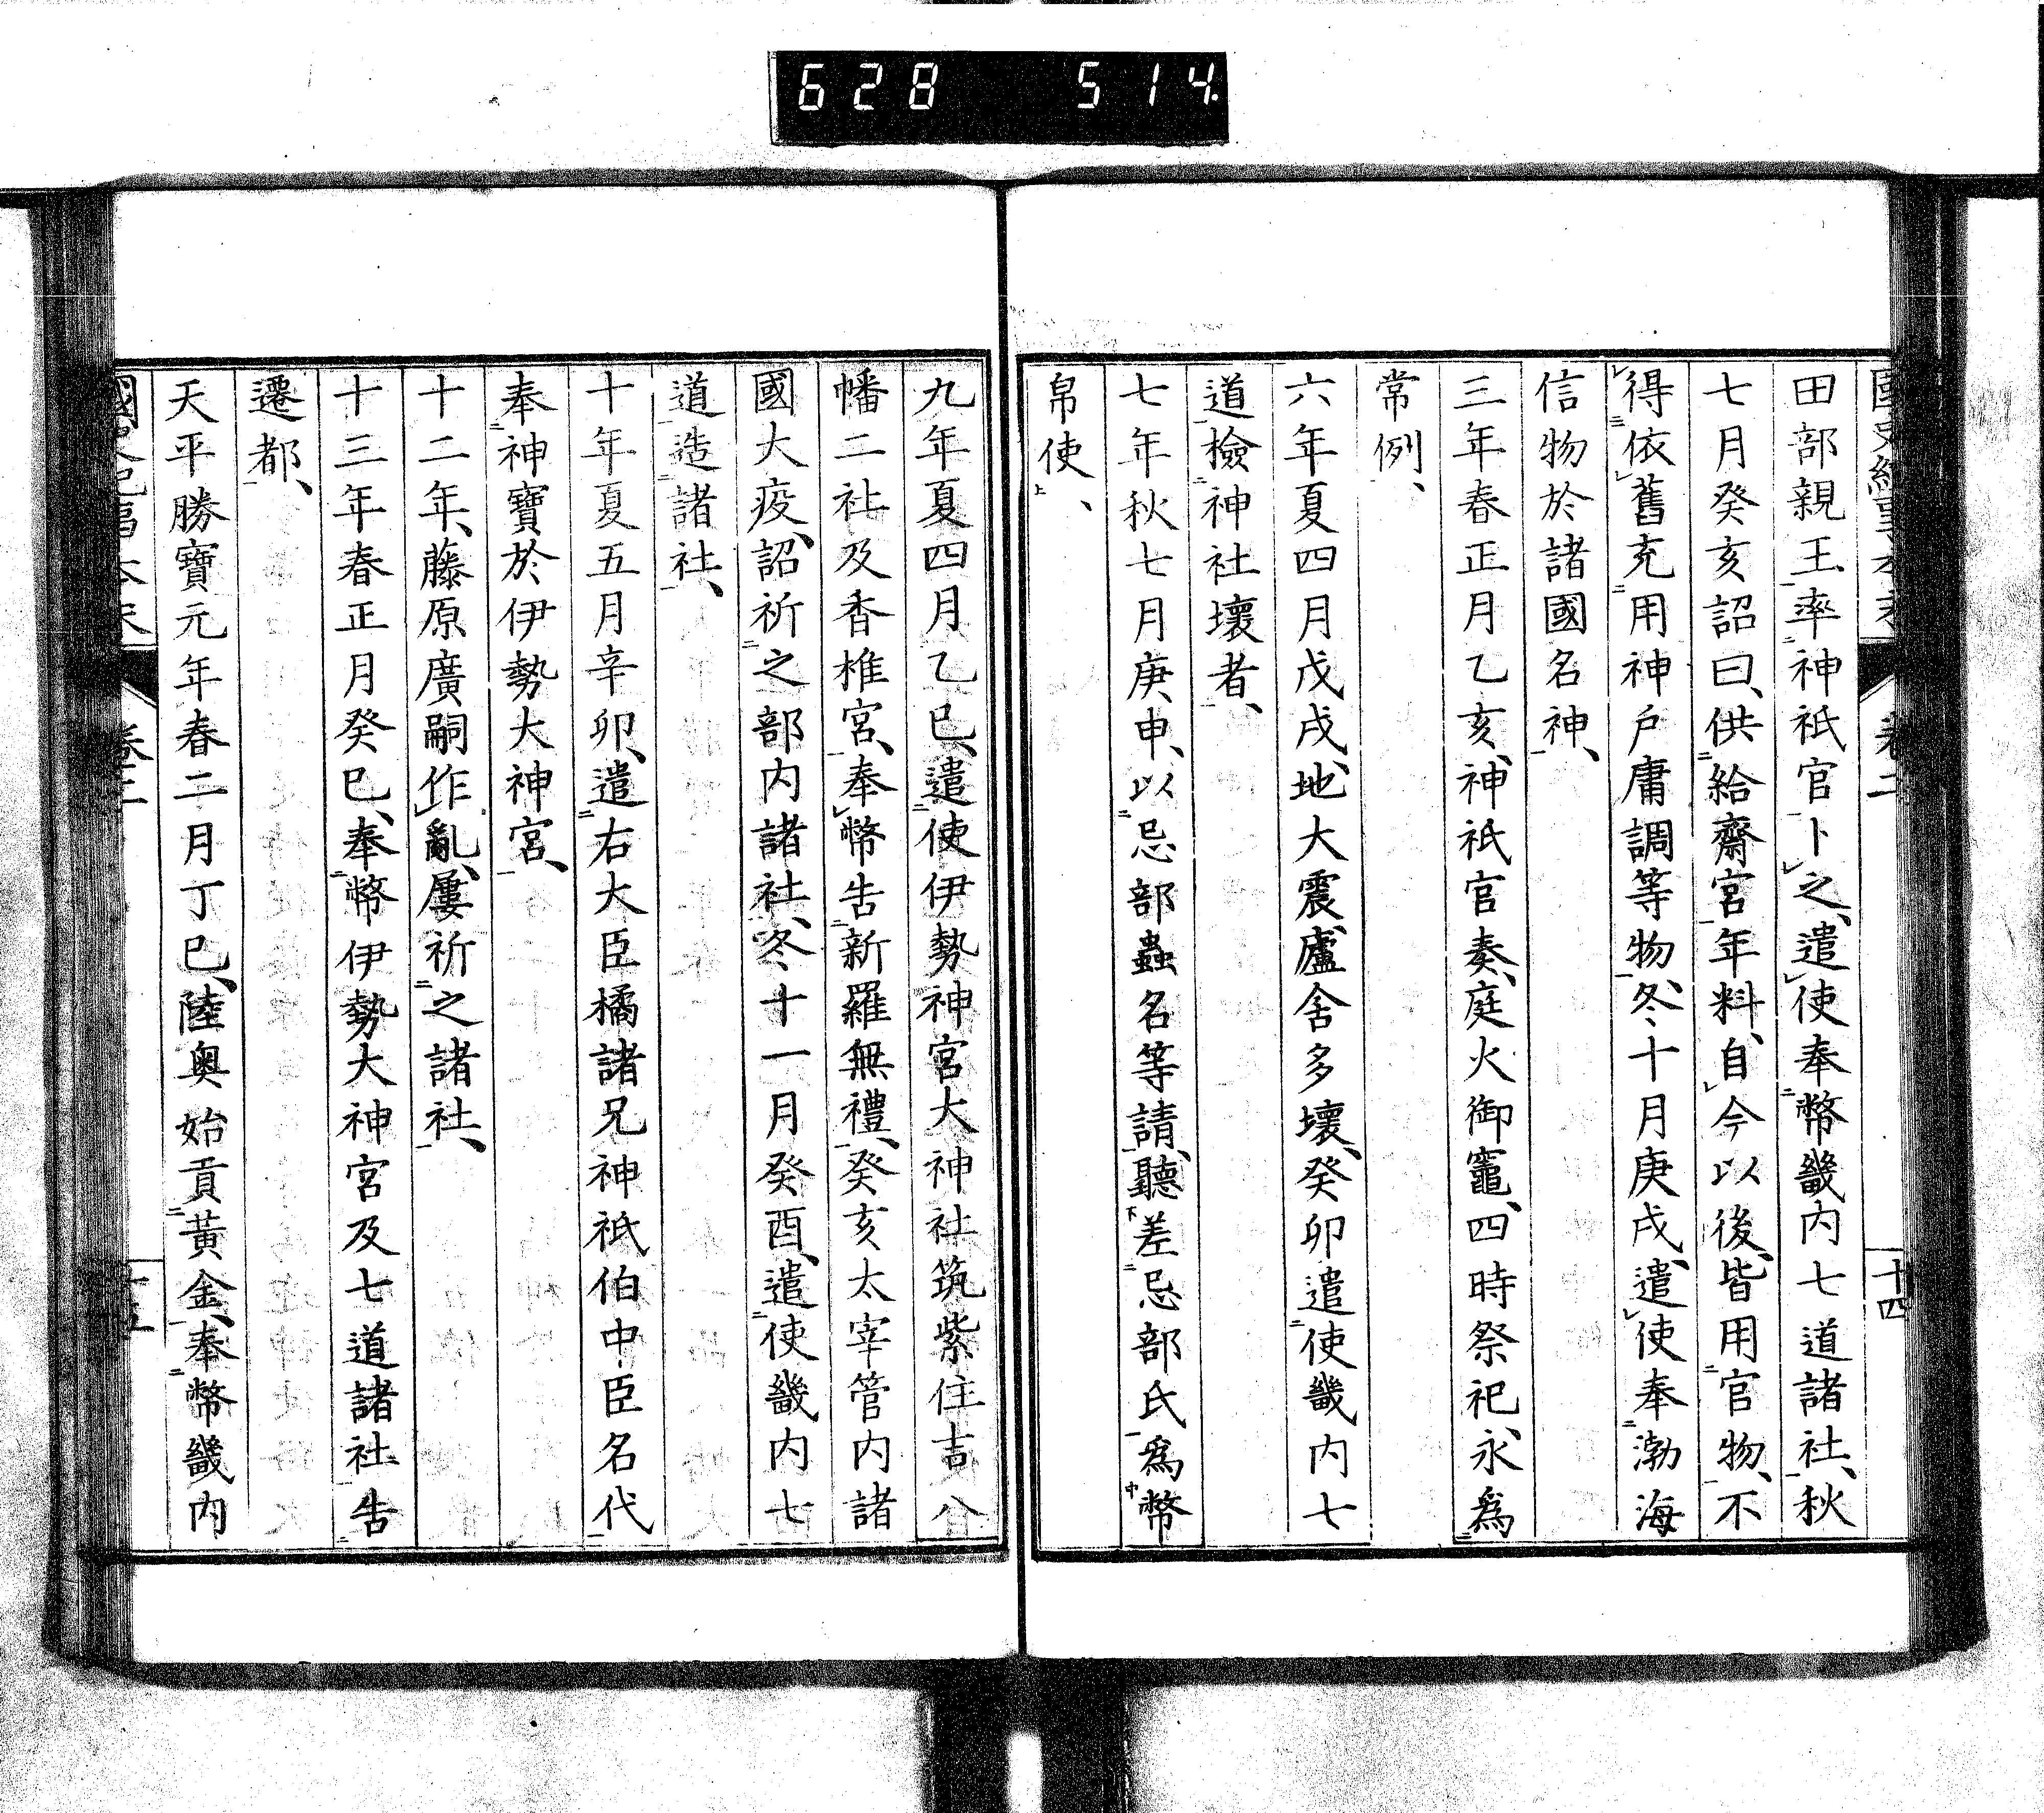 628 514
卷二
十四
田部親王率神祇官卜之、遣使奉幣畿内七道諸社、秋
七月癸亥詔曰、供給齋宮年料、自今以後、皆用官物、不
得依舊充用神戶庸調等物、冬十月庚戌、遣使奉渤海
信物於諸國名神、
三年春正月乙亥、神祇官奏、庭火御竈、四時祭祀、永爲
常例、
六年夏四月戊戌、地大震、廬舍多壞、癸卯遣使畿内七
道檢神社壞者、
七年秋七月庚申、以忌部蟲名等請、聽差忌部氏爲幣
帛使、
九年夏四月乙巳、遣使伊勢神宮大神社筑紫住吉八
幡二社及香椎宮、奉幣告新羅無禮、癸亥太宰管内諸
國大疫、詔祈之部内諸社、冬十一月癸酉、遣使畿内七
道造諸社、
十年夏五月辛卯、遣右大臣橘諸兄神祇伯中臣名代
奉神寶於伊勢大神宮、
十二年、藤原廣嗣作亂、屢祈之諸社、
十三年春正月癸巳、奉幣伊勢大神宮及七道諸社告
遷都、
天平勝寶元年春二月丁巳、陸奥始貢黃金、奉幣畿内